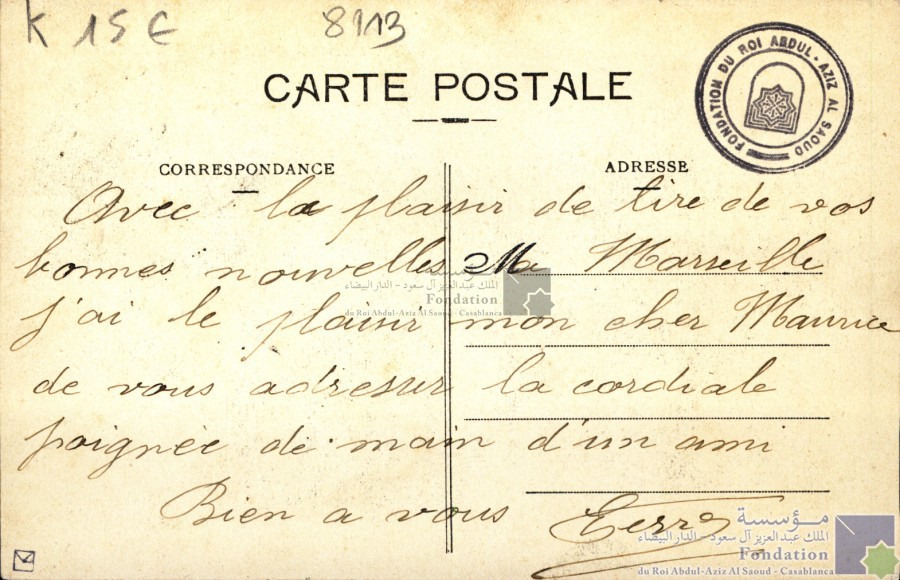 K 15 €
8113
CARTE POSTALE
FONDATION DU ROI ABDUL-AZIZ AL SAOUD
CORRESPONDANCE
ADRESSE
Avec la plaisir de lire de vos
bonnes nouvelles Ma Marseille
j'ai le plaisir mon cher Maurice
de vous adresser la cordiale
poignée de main d'un ami
Bien a vous
مؤسسة
الملك عبد العزيز آل سعود - الدار البيضاء
Fondation
du Roi Abdul-Aziz Al Saoud - Casablanca
مؤسسة
الملك عبد العزيز آل سعود - الدار البيضاء
Fondation
du Roi Abdul-Aziz Al Saoud - Casablanca